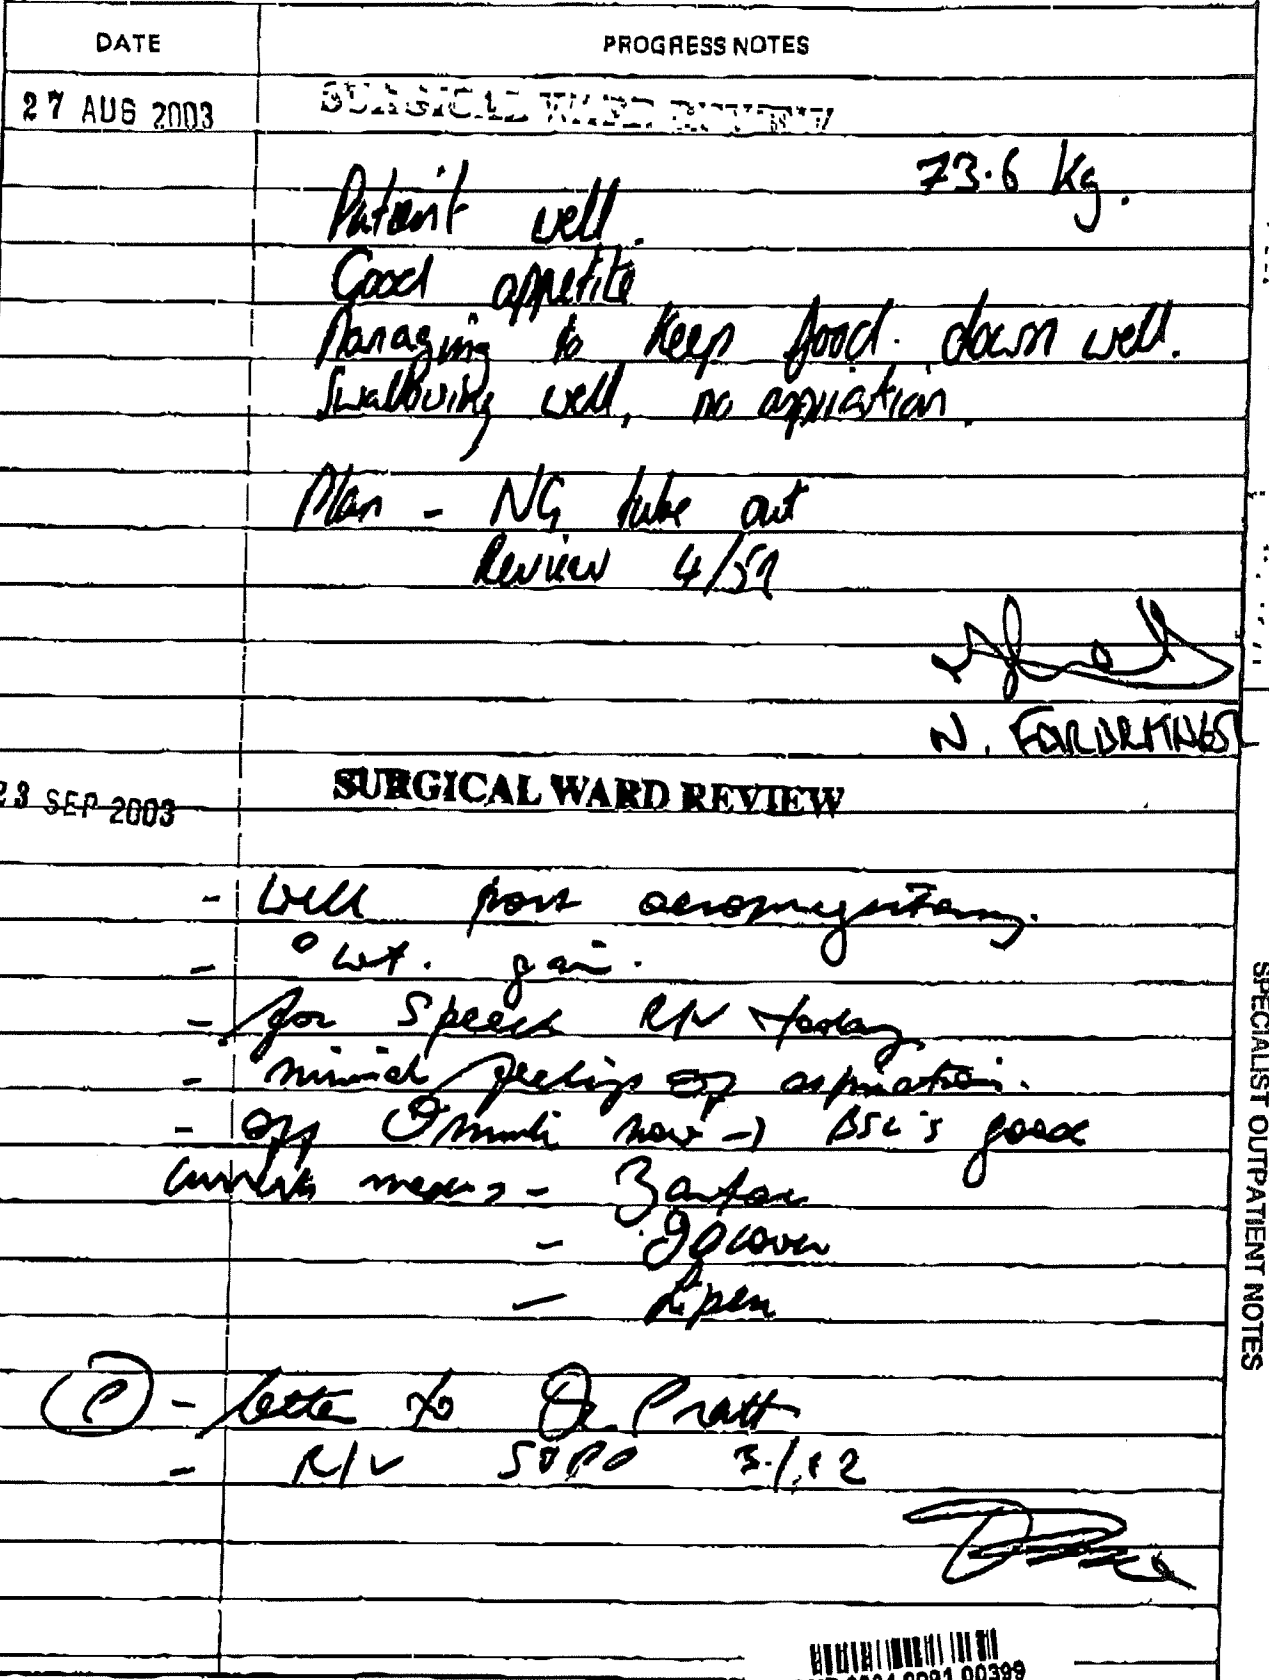 DATE PROGRESS NOTES
27 AUG 2003 SURGICAL WARD REVIEW
73.6 kg.
Patient well.
Good appetite
Managing to keep food down well.
Swallowing well, no aspiration
Plan - NG tube out
Review 4/52
N.
23 SEP 2003 SURGICAL WARD REVIEW
- well post
- ° wt. gain.
- for Speech R/V today
- minimal feelings of aspiration.
- off now → BSL's good
current meds -
- 
- Lipex
(P) - letter to Dr Pratt
- R/V SOPD 3/12
SPECIALIST OUTPATIENT NOTES